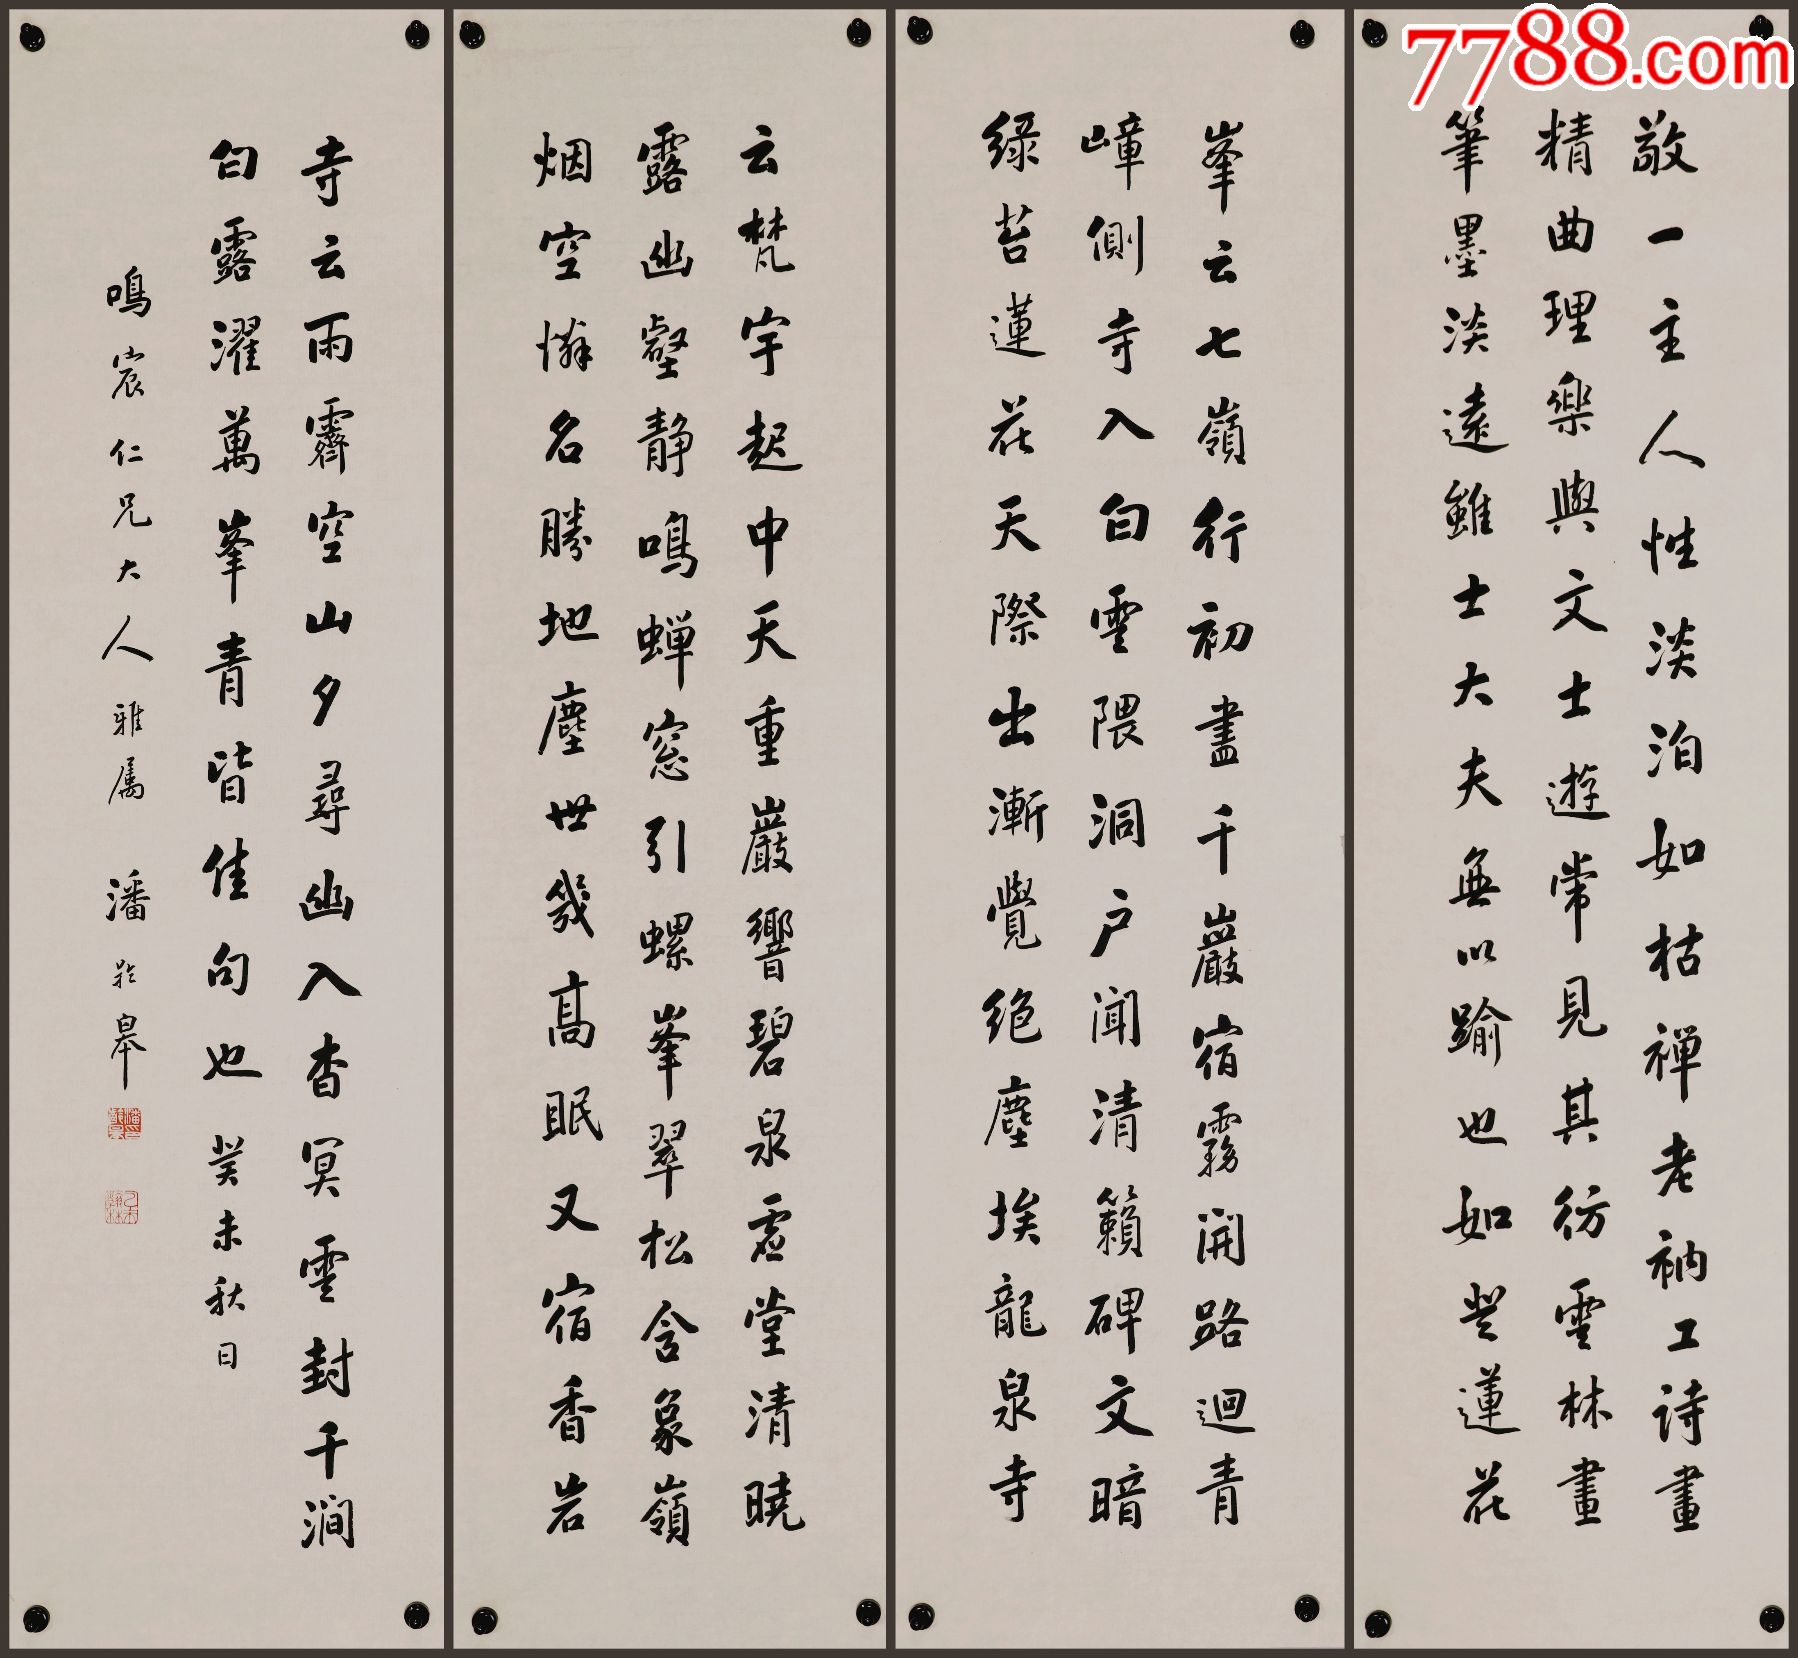 7788.com
敬一主人性淡泊如枯禅老衲工诗畫
精曲理樂與文士遊常見其彷雲林畫
筆墨淡遠雖士大夫無以踰也如登蓮花
峯云七嶺行初盡千巖宿霧開路迴青
嶂側寺入白雲隈洞户闻清籟碑文暗
緑苔蓮花天際出漸覺绝塵埃龍泉寺
云梵宇起中天重巖響碧泉虚堂清曉
露幽壑静鳴蝉窓引螺峯翠松含象嶺
烟空憐名勝地塵世幾高眠又宿香岩
寺云雨霽空山夕尋幽入杳冥雲封千澗
白露濯萬峯青皆佳句也 癸未秋日
鳴宸仁兄大人雅属 潘齡皋